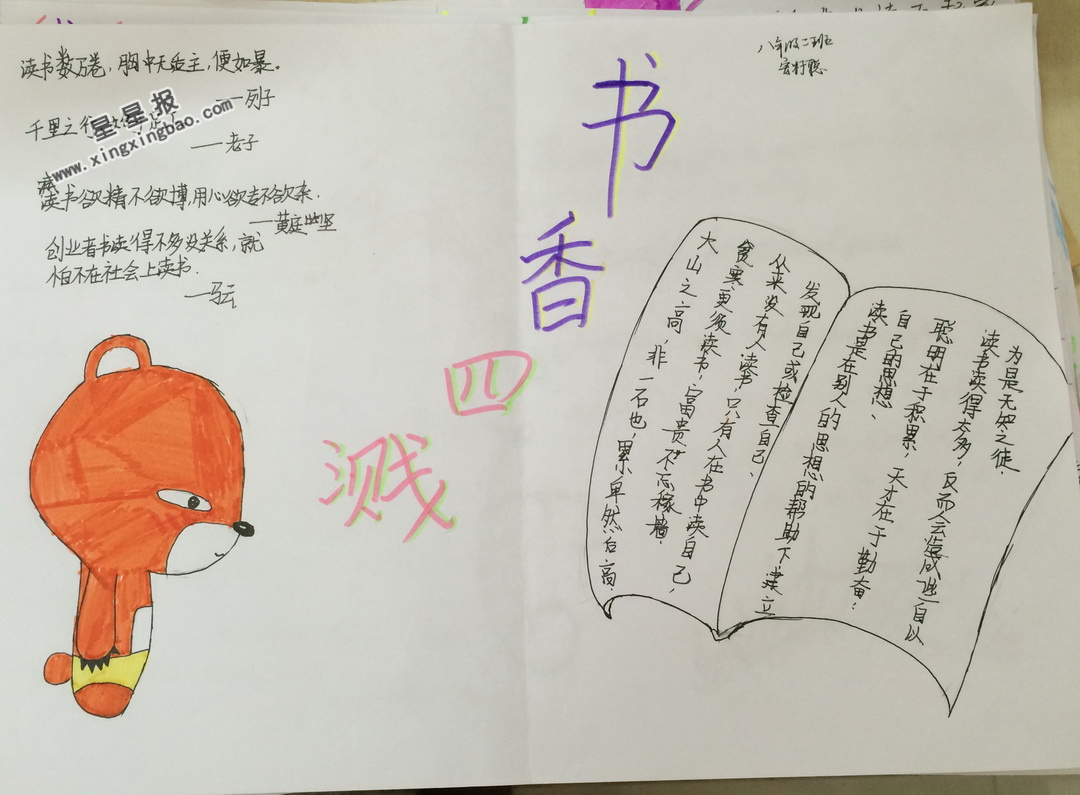 读书数万卷，胸中无适主，便如暴。
——列子
千里之行
——老子
读书欲精不欲博，用心欲专不欲杂.
——黄庭坚
创业者书读得不多没关系，就
怕不在社会上读书.
——马云
星星报
www.xingxingbao.com
书香四溅
八年级二班
大山之高，非一石也，累卑然后高.
贫寒更须读书，富贵不忘稼穑.
从来没有人读书，只有人在书中读自己，
发现自己或检查自己、
读书是在别人的思想的帮助下建立
自己的思想、
聪明在于积累，天才在于勤奋.
读书读得太多，反而会造成些一自以
为是无知之徒.